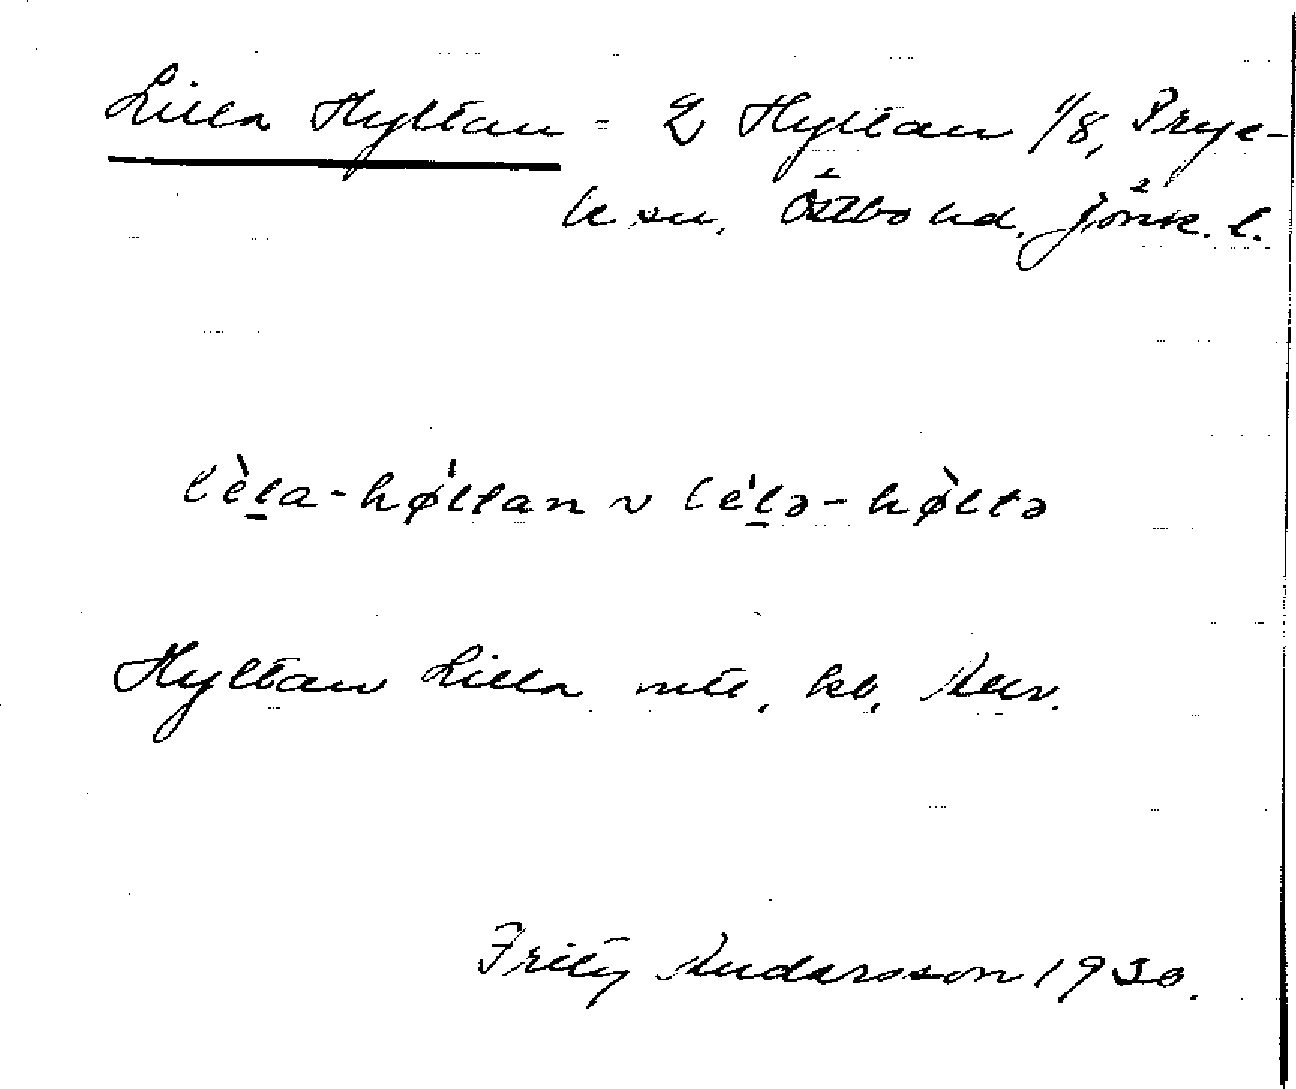 Lilla Hyltan = L Hyltan 1/8, Brye-
k sn, Östbo hd. Jönk. l.
lèla-hǿltan ~ léla-hø̀lta
Hyltan Lilla mtl, kb,
Frity Andersson 1930.